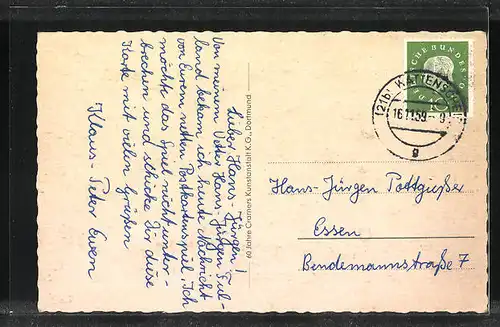 Lieber Hans-Jürgen!
Von meinem Vetter Hans-Jürgen Ful-
land bekam ich heute Nachricht
von Eurem netten Postkartenspiel. Ich
möchte das Spiel nicht unter-
brechen und schicke Dir diese
Karte mit vielen Grüßen
Klaus-Peter Ewen
60 Jahre Cramers Kunstanstalt K.G., Dortmund
SCHE BUNDESPO
10
(21b) KATTENSC
16.11.59
g
Hans-Jürgen Pottgießer
Essen
Bendemannstraße 7